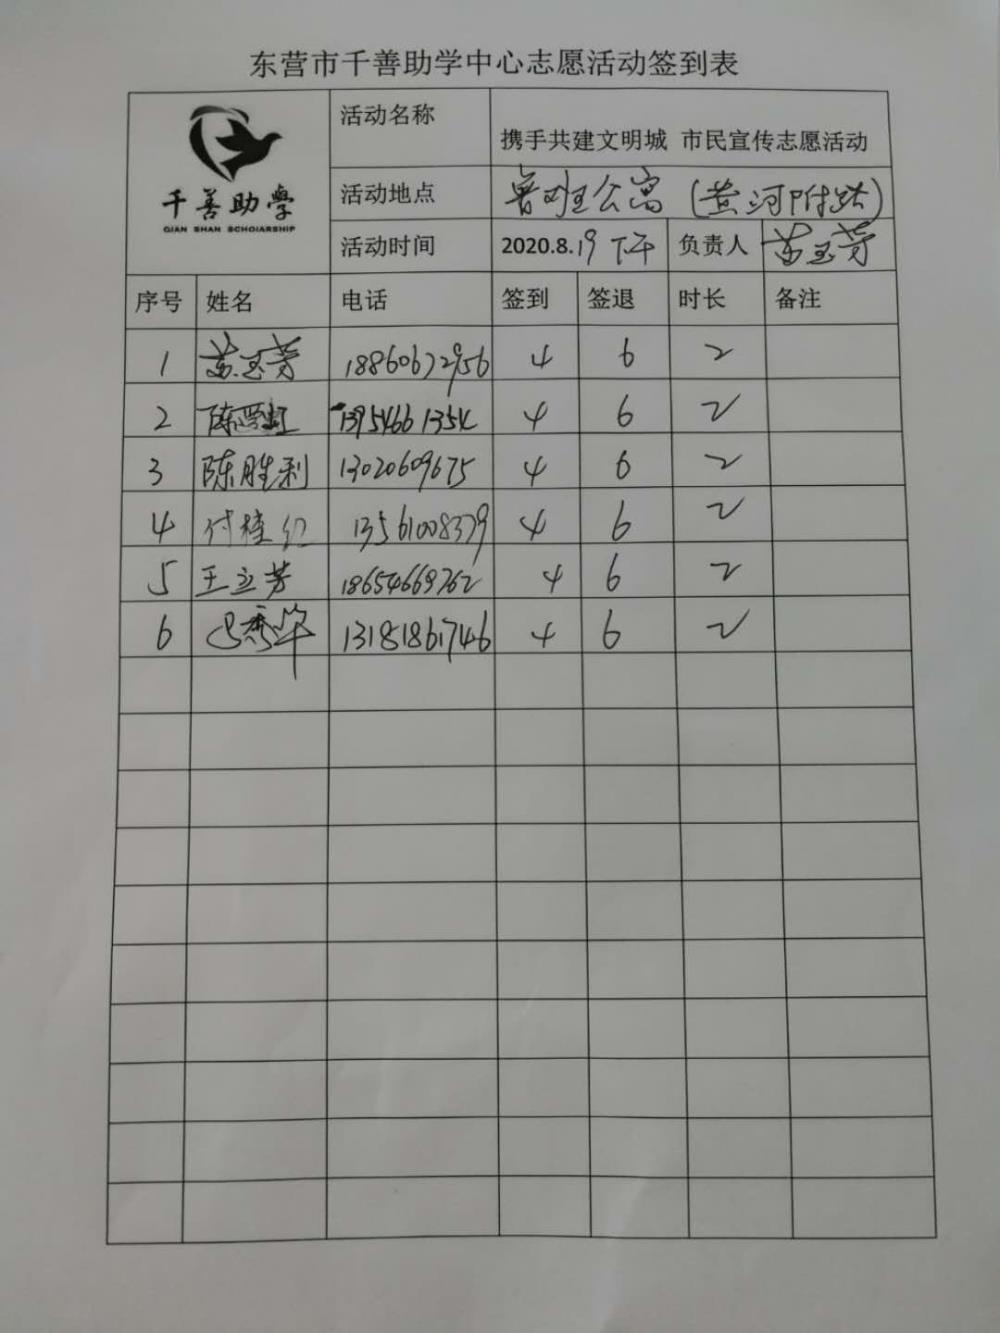 东营市千善助学中心志愿活动签到表
千善助學
QIAN SHAN SCHOlARSHIP
活动名称 携手共建文明城 市民宣传志愿活动
活动地点 鲁班公寓（黄河附路）
活动时间 2020.8.19 下午 负责人 苗玉芳
序号 姓名 电话 签到 签退 时长 备注
1 苗玉芳 18860672956 4 6 2
2 陈 13954661354 4 6 2
3 陈胜利 13020609675 4 6 2
4 付桂红 13561008379 4 6 2
5 王立芳 18654669762 4 6 2
6 秀华 13181861746 4 6 2